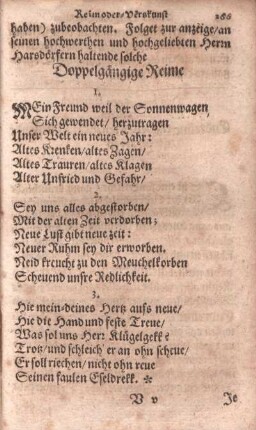 Reim oder Verskunst 266
haben) zubeobachten. Folget zur anzeige/an
seinen hochwerthen und hochgeliebten Herrn
Harsdörfern haltende solche
Doppelgängige Reime
1.
MEin Freund weil der Sonnenwagen
Sich gewendet/ herzutragen
Unser Welt ein neues Jahr:
Altes Krenken/altes Zagen/
Altes Trauren/altes Klagen
Alter Unfried und Gefahr/
2.
Sey uns alles abgestorben/
Mit der alten Zeit verdorben;
Neue Lust gibt neue zeit:
Neuer Ruhm sey dir erworben.
Neid kreucht zu den Meuchelkorben
Scheuend unsre Redlichkeit.
3.
Hie mein-deines Hertz aufs neue/
Hie die Hand und feste Treue/
Was sol uns Herr Klügelgekk?
Trotz/und schleich' er an ohn scheue/
Er soll riechen/nicht ohn reue
Seinen faulen Eseldrekk. *
V v Je